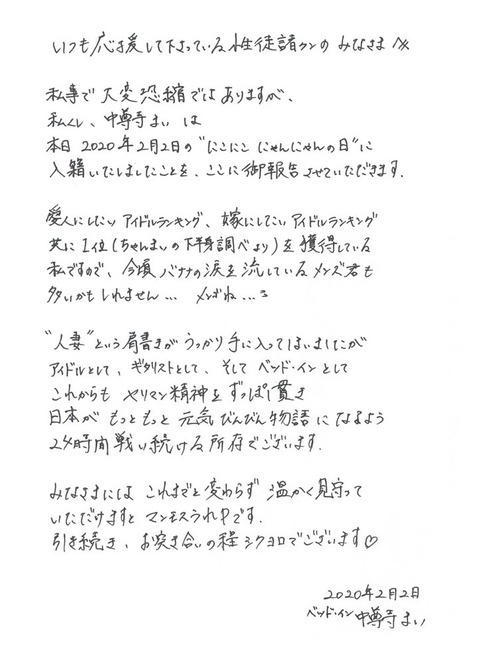 いつも応援して下さっている性徒諸クンのみなさまへ
私事で大変恐縮ではありますが、
私くし、中尊寺まいは
本日2020年2月2日の"にこにこにゃんにゃんの日"に
入籍いたしましたことを、ここに御報告させていただきます.
愛人にしたいアイドルランキング、嫁にしたいアイドルランキング
共に1位(ちゃんまいの下半身調べより)を獲得している
私ですので、今頃バナナの涙を流しているメンズ君も
多いかもしれません… メンゴね…
"人妻"という肩書きがうっかり手に入ってしまいましたが
アイドルとして、ギタリストとして、そしてベッド・インとして
これからもヤリマン精神をずっぽし貫き
日本がもっともっと元気びんびん物語になるよう
24時間戦い続ける所存でございます.
みなさまにはこれまでと変わらず温かく見守って
いただけますとマンモスうれPです.
引き続き、お突き合いの程シクヨロでございます♡
2020年2月2日
ベッド・イン 中尊寺まい